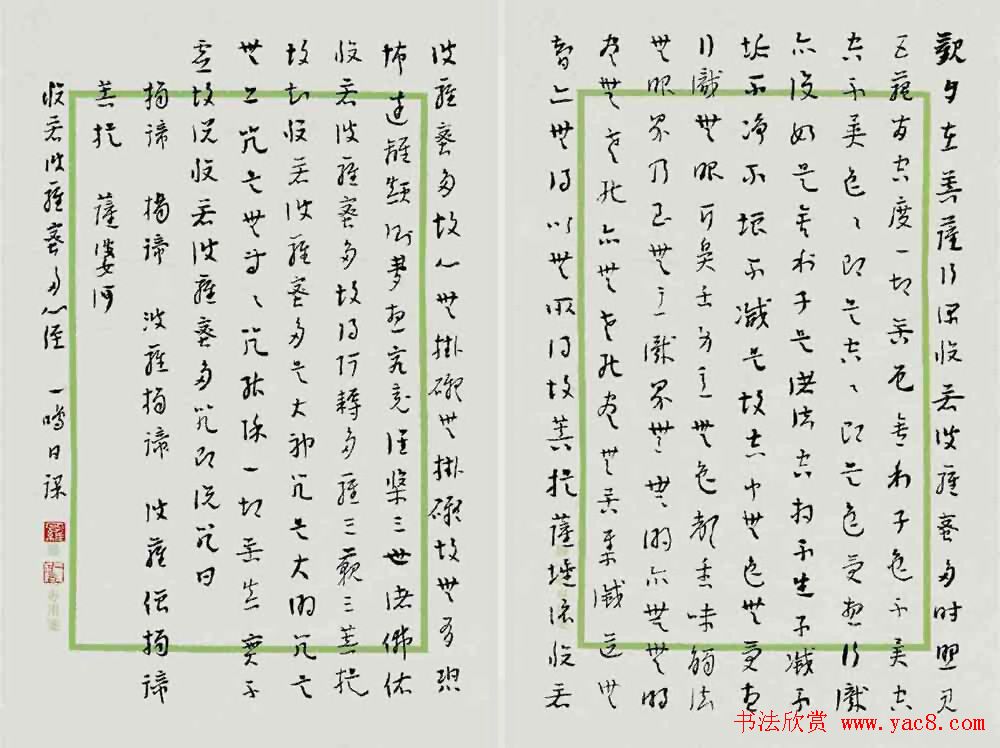 觀自在菩薩行深般若波羅蜜多時照見
五蘊皆空度一切苦厄舍利子色不異空
空不異色〻即是空〻即是色受想行識
亦復如是舍利子是諸法空相不生不滅不
垢不淨不增不減是故空中無色無受想
行識無眼耳鼻舌身意無色聲香味觸法
無眼界乃至無意識界無無明亦無無明
盡無老死亦無老死盡無苦集滅道無
智亦無得以無所得故菩提薩埵依般若
波羅蜜多故心無掛礙無掛礙故無有恐
怖遠離顛倒夢想究竟涅槃三世諸佛依
般若波羅蜜多故得阿耨多羅三藐三菩提
故知般若波羅蜜多是大神咒是大明咒是
無上咒是無等〻咒能除一切苦真實不
虛故說般若波羅蜜多咒即說咒曰
揭諦 揭諦 波羅揭諦 波羅僧揭諦
菩提 薩婆訶
般若波羅蜜多心經 一鳴日課
书法欣赏 www.yac8.com